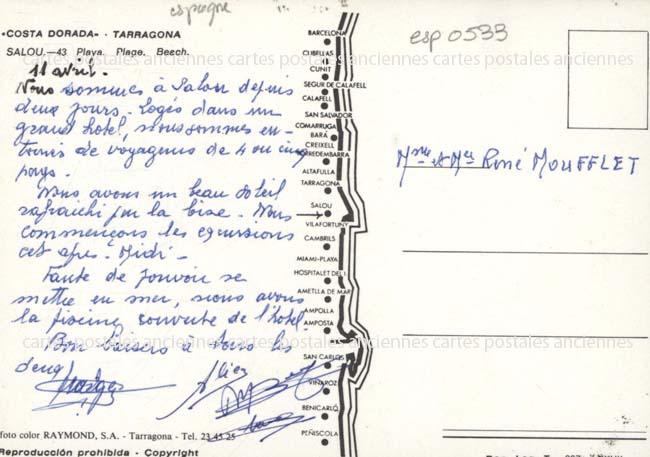 espagne
esp 0533
«COSTA DORADA» - TARRAGONA
SALOU.—43 Playa. Plage. Beech.
11 avril -
Nous sommes à Salou depuis
deux jours. Logés dans un
grand hôtel, nous sommes en-
tourés de voyageurs de 4 ou cinq
pays.
Nous avons un beau soleil
rafraichi par la bise. Nous
commençons les excursions
cet après-Midi -
Faute de pouvoir se
mettre en mer, nous avons
la piscine couverte de l'hôtel.
Bon baisers à tous les
deux
foto color RAYMOND, S.A. - Tarragona - Tel. 23.45.25
Reproducción prohibida - Copyright
BARCELONA
CUBELLAS
CUNIT
SEGUR DE CALAFELL
CALAFELL
SAN SALVADOR
COMARRUGA
BARÁ
CREIXELL
TORREDEMBARRA
ALTAFULLA
TARRAGONA
SALOU
VILAFORTUNY
CAMBRILS
MIAMI-PLAYA
HOSPITALET DEL I.
AMETLLA DE MAR
AMPOLLA
AMPOSTA
SAN CARLOS
VINAROZ
BENICARLÓ
PEÑISCOLA
Mme et Mr René MOUFFLET
cartes postales anciennes cartes postales anciennes cartes postales anciennes
cartes postales anciennes cartes postales anciennes cartes postales anciennes